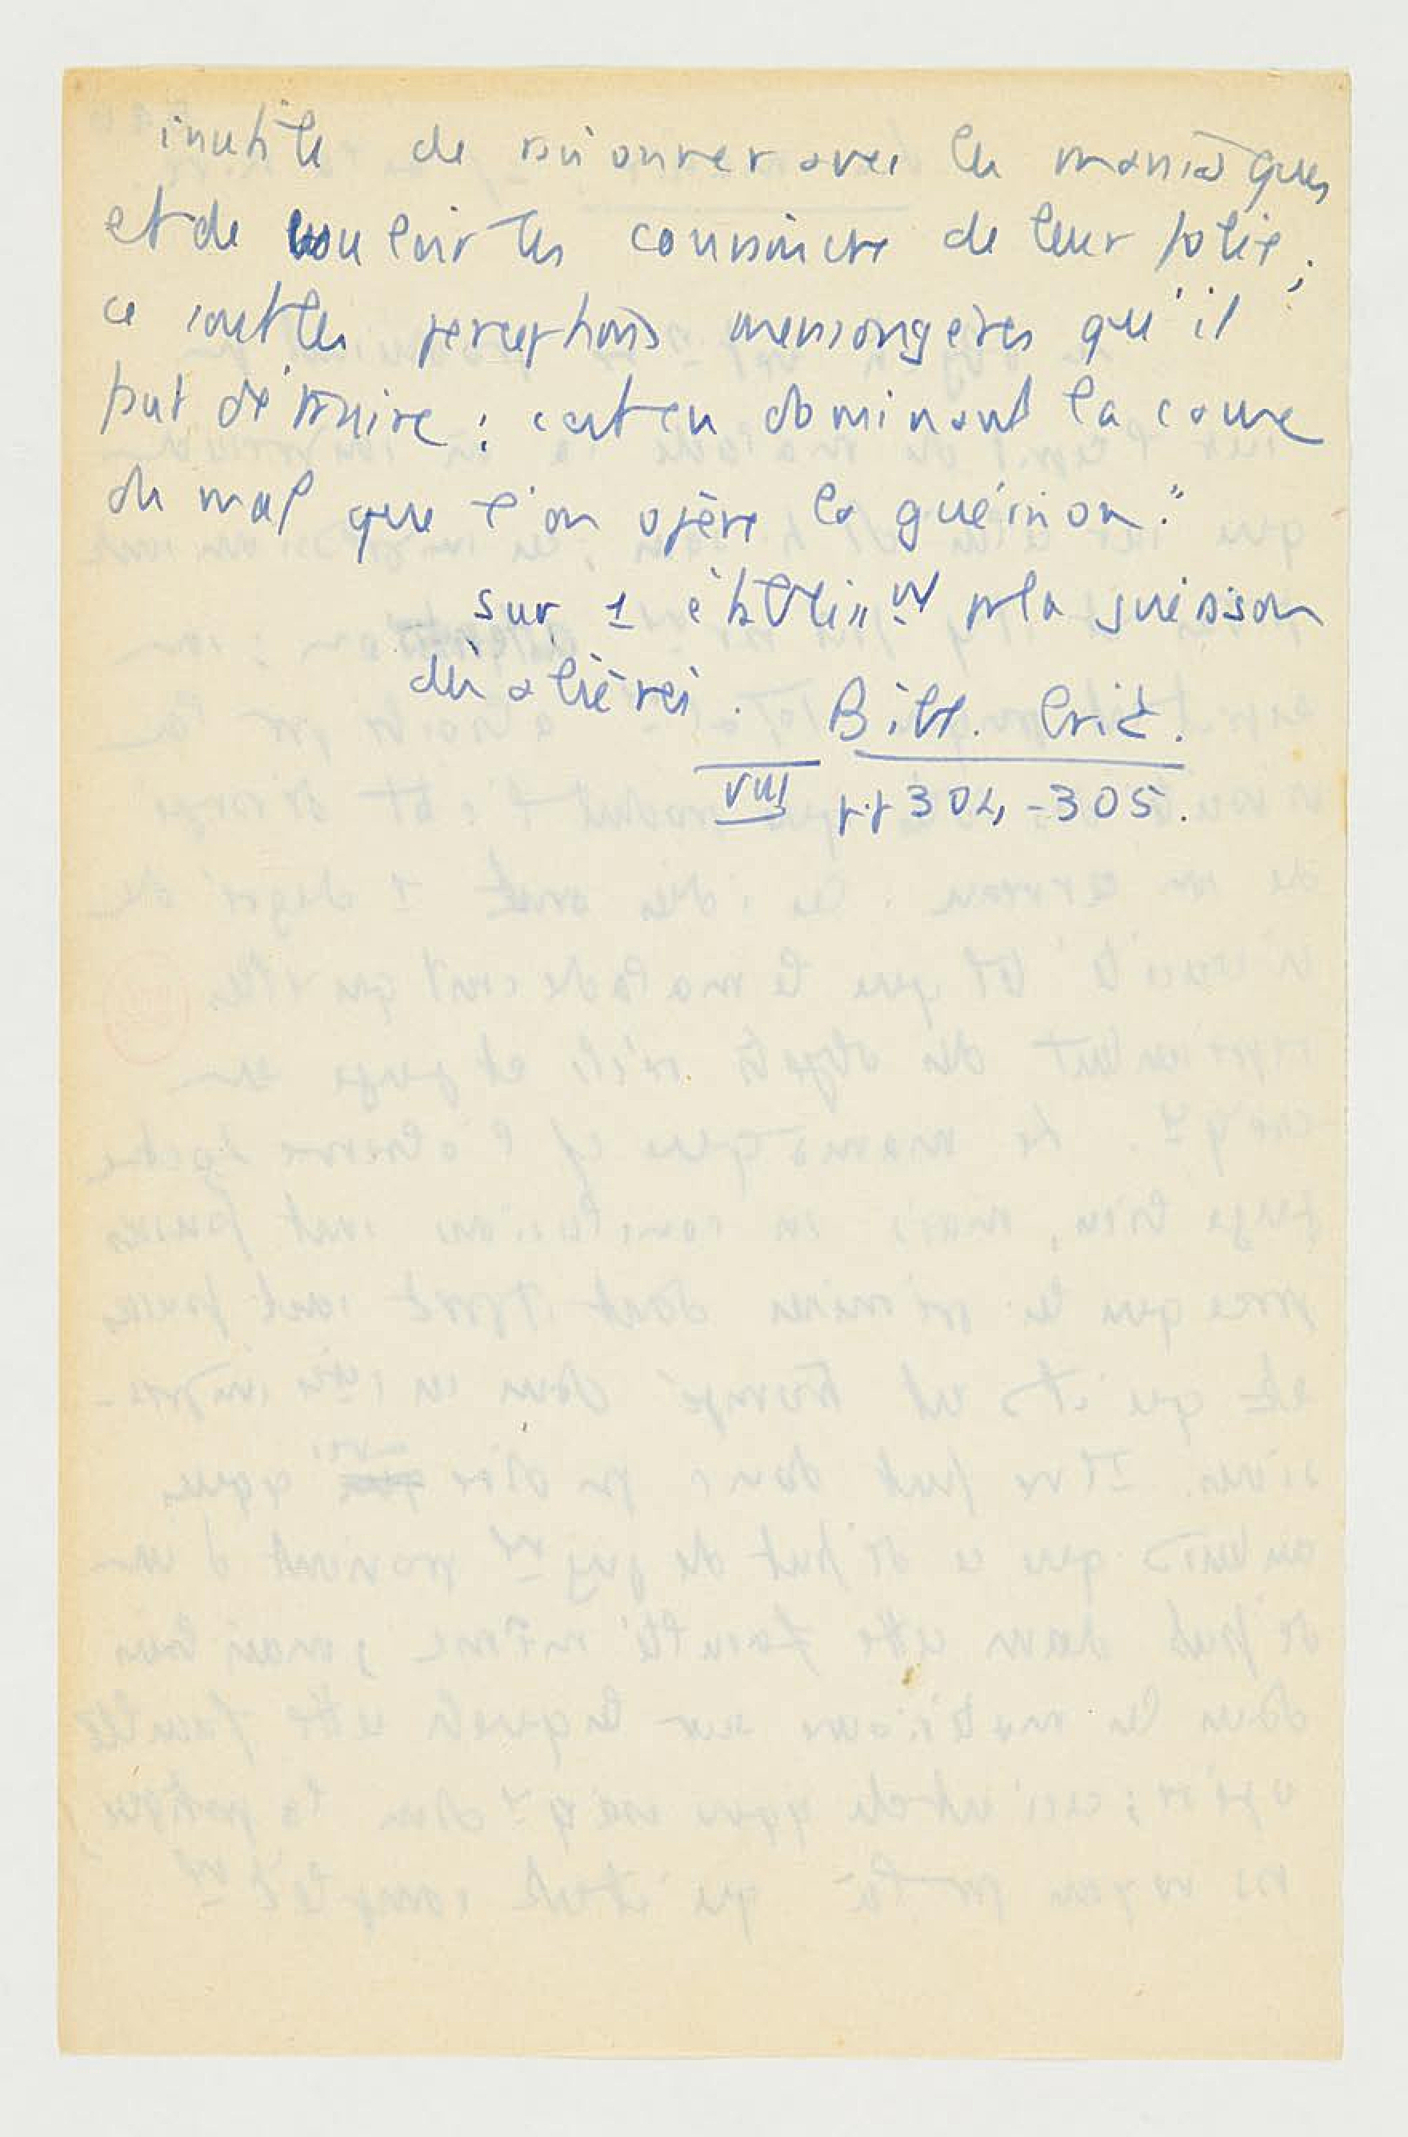 inutile de raisonner avec les maniaques
et de vouloir les convaincre de leur folie ;
ce sont les perceptions mensongères qu'il
faut détruire : c'est en dominant la cause
du mal que l'on opère la guérison."
sur 1 établiss.nt pr la guérison
des aliénés. Bibl. brit.
VIII pp 304-305.